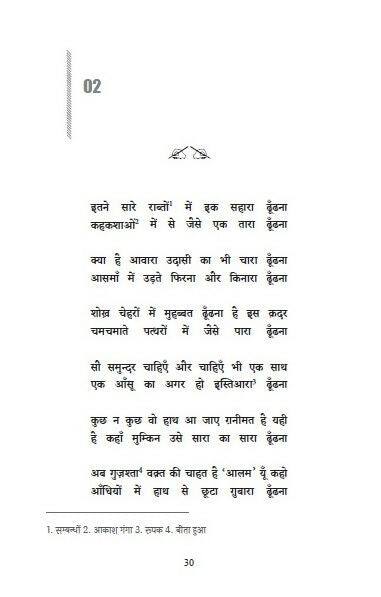 02
इतने सारे राब्तों¹ में इक सहारा ढूँढना
कहकशाओं² में से जैसे एक तारा ढूँढना
क्या है आवारा उदासी का भी चारा ढूँढना
आसमाँ में उड़ते फिरना और किनारा ढूँढना
शोख़ चेहरों में मुहब्बत ढूँढना है इस क़दर
चमचमाते पत्थरों में जैसे पारा ढूँढना
सौ समुन्दर चाहिएँ और चाहिएँ भी एक साथ
एक आँसू का अगर हो इस्तिआरा³ ढूँढना
कुछ न कुछ वो हाथ आ जाए ग़नीमत है यही
है कहाँ मुम्किन उसे सारा का सारा ढूँढना
अब गुज़श्ता⁴ वक़्त की चाहत है ‘आलम’ यूँ कहो
आँधियों में हाथ से छूटा ग़ुबारा ढूँढना
1. सम्बन्धों 2. आकाश गंगा 3. रूपक 4. बीता हुआ
30